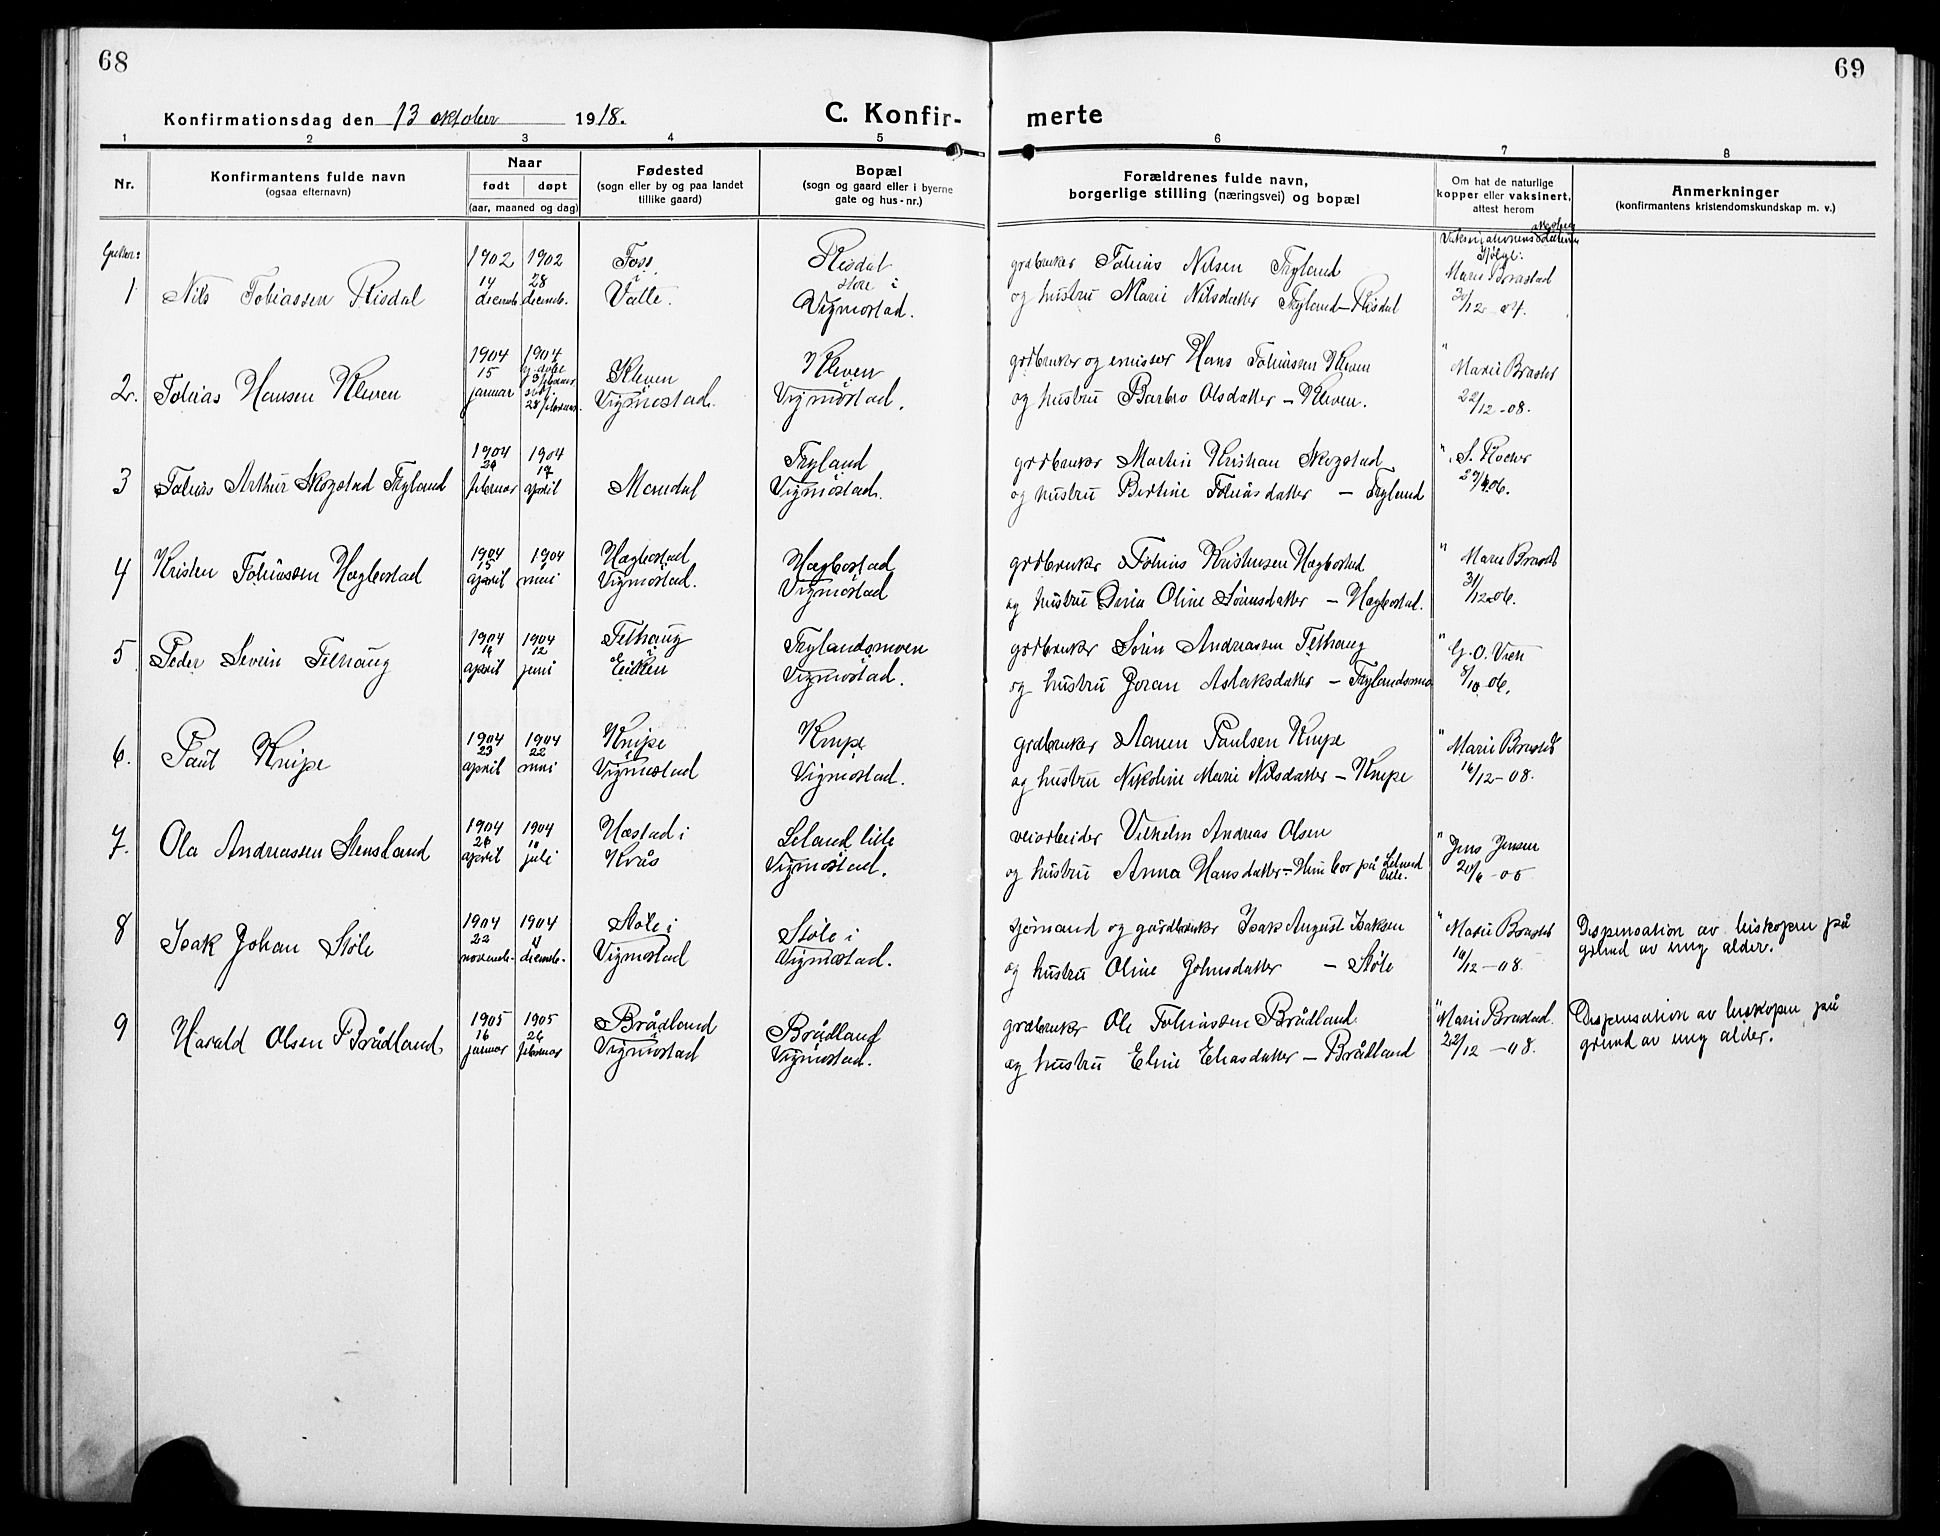 68
69
Konfirmationsdag den 13 oktober 1918.
C. Konfir-
merte
1 2 3 4 5 6 7 8
Nr.
Konfirmantens fulde navn
(ogsaa efternavn)
Naar
født døpt
(aar, maaned og dag)
Fødested
(sogn eller by og paa landet
tillike gaard)
Bopæl
(sogn og gaard eller i byerne
gate og hus-nr.)
Forældrenes fulde navn,
borgerlige stilling (næringsvei) og bopæl
Om hat de naturlige
kopper eller vaksinert,
attest herom
Anmerkninger
(konfirmantens kristendomskundskap m. v.)
Gutter:
1. Nils Tobiassen Risdal
1902 14 decemb.
1902 28 decemb.
Foss i
Valle.
Risdal
store i
Vigmostad.
grdbruker Tobias Nilsen Tryland
og hustru Marie Nilsdatter Tryland-Risdal
Marie Brastad
30/12 04.
2. Tobias Hansen Kleven
1904 15 januar
1904 3 februar
28 februar.
Kleven
Vigmostad.
Kleven
Vigmostad.
grdbruker og emissær Hans Tobiassen Kleven
og hustru Barbro Olsdatter - Kleven.
" Marie Brastad
22/12-08.
3 Tobias Arthur Skogstad Tryland
1904 februar
1904 april
Mandal
Tryland
Vigmostad.
grdbruker Martin Kristian Skogstad
og hustru Bertine Tobiasdatter - Tryland
" S. Kocher
06.
4 Kristen Tobiassen Hægbostad
1904 15 april
1904 1 mai
Hægbostad
Vigmostad.
Hægbostad
Vigmostad
grdbruker Tobias Kristensen Hægbostad
og hustru Oline Sørensdatter - Hægbostad.
" Marie Brastad
31/12 06.
5 Peder Severin Telhaug
1904 april
1904 12 juni
Telhaug
i Eiken
Trylandsmoen
Vigmostad.
grdbruker Søren Andreassen Telhaug
og hustru Joran Aslaksdatter - Trylandsmo
" G. O.
8/10 06.
6. Paul Knipe
1904 23 april
1904 22 mai
Knipe
Vigmostad
Knipe
Vigmostad.
grdbruker Aanen Paulsen Knipe
og hustru Nikoline Marie Nilsdatter - Knipe
" Marie Brastad
16/12-08.
7. Ola Andreassen Stensland
1904 26 april
1904 10 juli
Hæstad i
Kvås
Leland lille
Vigmostad.
veiarbeider Vilhelm Andreas Olsen
og hustru Anna Hansdatter - Hun bor på Leland lille.
" Jens Jensen
20/6-05
8 Isak Johan Støle
1904 22 novemb.
1904 4 decemb.
Støle i
Vigmostad
Støle i
Vigmostad.
sjømand og gårdbruker Isak August Isaksen
og hustru Oline Johnsdatter - Støle
" Marie Brastad
16/12-08.
Dispensation av biskopen på
grund av ung alder.
9 Harald Olsen Brådland
1905 16 januar
1905 26 februar
Brådland
Vigmostad
Brådland
Vigmostad.
grdbruker Ole Tobiassen Brådland
og hustru Eline Eliasdatter - Brådland
" Marie Brastad.
22/12-08.
Dispensation av biskopen på
grund av ung alder.